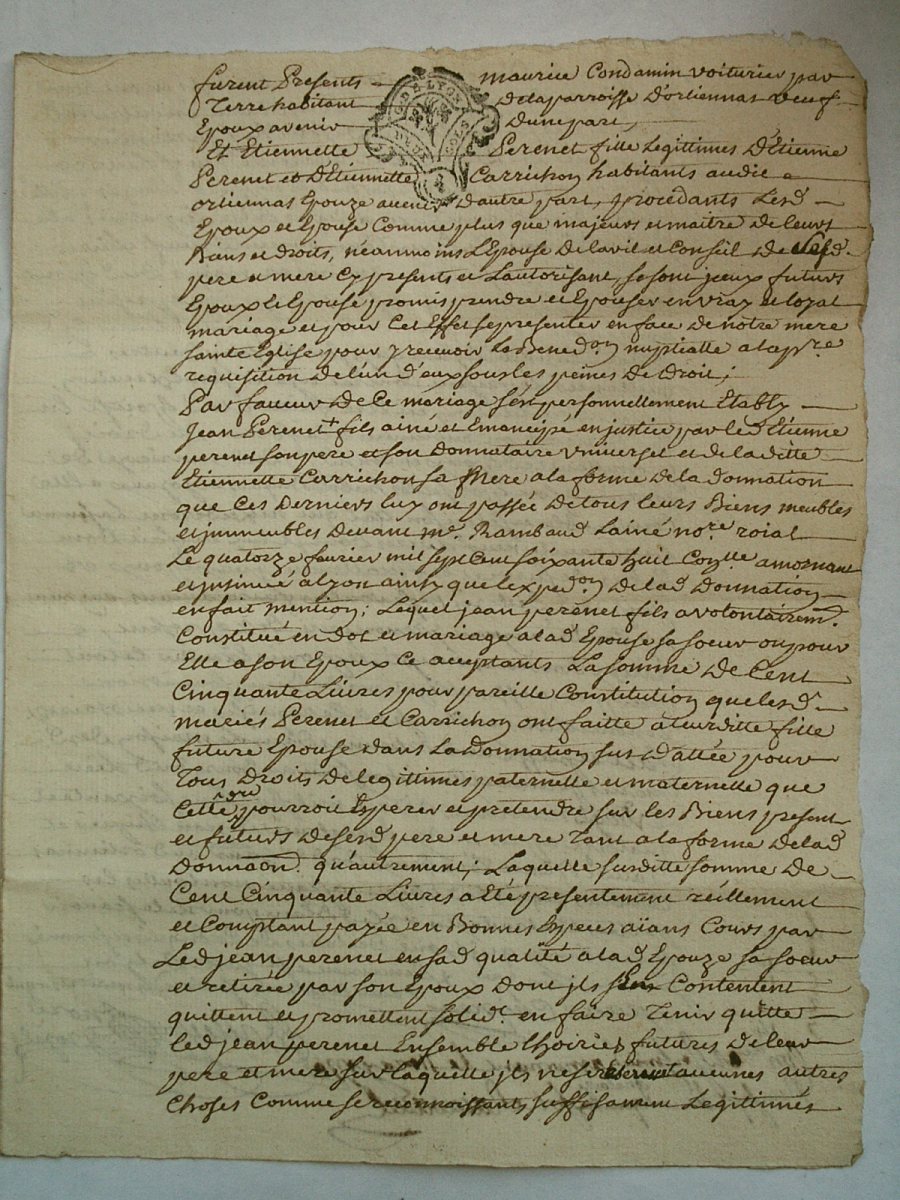 furent Presents maurice Condamin voiturier par
Terre habitant De la parroisse D'orliennas veuf
Epoux avenir D'une part,
Et Etiennette Perenet fille Legittimes D'Etienne
Perenet et D'Etiennette Carrichon habitants audie
orliennas Epouze avenir D'autre part, procedants Lesd
Epoux et Epouse Comme plus que majeurs et maitre De leurs
Biens et droits, néanmoins L'Epouse De lavil et Conseil de sesd
pere et mere Cy presents et Lautorisant, se sont jceux futurs
Epoux et Epouse promis prendre et Epouser en vray et loyal
mariage et pour Cet Effet se presenter en face De notre mere
sainte Eglise pour y recevoir La Bened.on nuptialle a la p.re
requisition De l'un d'eux sous les peines De Droit;
Par faveur De Ce mariage s'est personnellement Etably
Jean Perenet fils ainé et Emancipé en justice par led Etienne
perenet son pere et son Donnataire universel et de la ditte
Etiennette Carrichon sa Mere a la forme de la donnation
que Ces Derniers luy ont passée De tous leurs Biens meubles
et jmmeubles Devant me. Rambaud Lainé no.re roial
Le quatorze fevrier mil sept Cent soixante huit a mornant
et jnsinué a Lyon ainsy que lexped.on De lad Donnation
en fait mention; Lequel jean perenet fils a volontairem.t
Constitué en Dot et mariage a lad Epouse sa soeur ou pour
Elle a son Epoux Ce acceptants La somme De Cent
Cinquante Livres pour pareille Constitution que lesd.
mariés Perenet et Carrichon ont faitte a leur ditte fille
future Epouse dans La Donnation sus D'attée pour
Tous Droits De legittimes paternelle et maternelle que
Cette pourroit Esperer et pretendre sur les Biens present
et futurs De sesd pere et mere Tant a la forme De lad
Donnaon. qu'autrement; Laquelle susditte somme De
Cent Cinquante Livres a Eté presentement réellement
et Comptant payée en Bonnes Especes aïans Cours par
Led jean perenet en sad qualité a lad Epouze sa soeur
et retirée par son Epoux Dont jls sen Contentent
quittent et promettent solid.t en faire Tenir quitte
led jean perenet Ensemble Lhoiries futures De leur
pere et mere sur Laquelle jls aucunes autres
Choses Comme se reconnoissants suffisament Legittimés